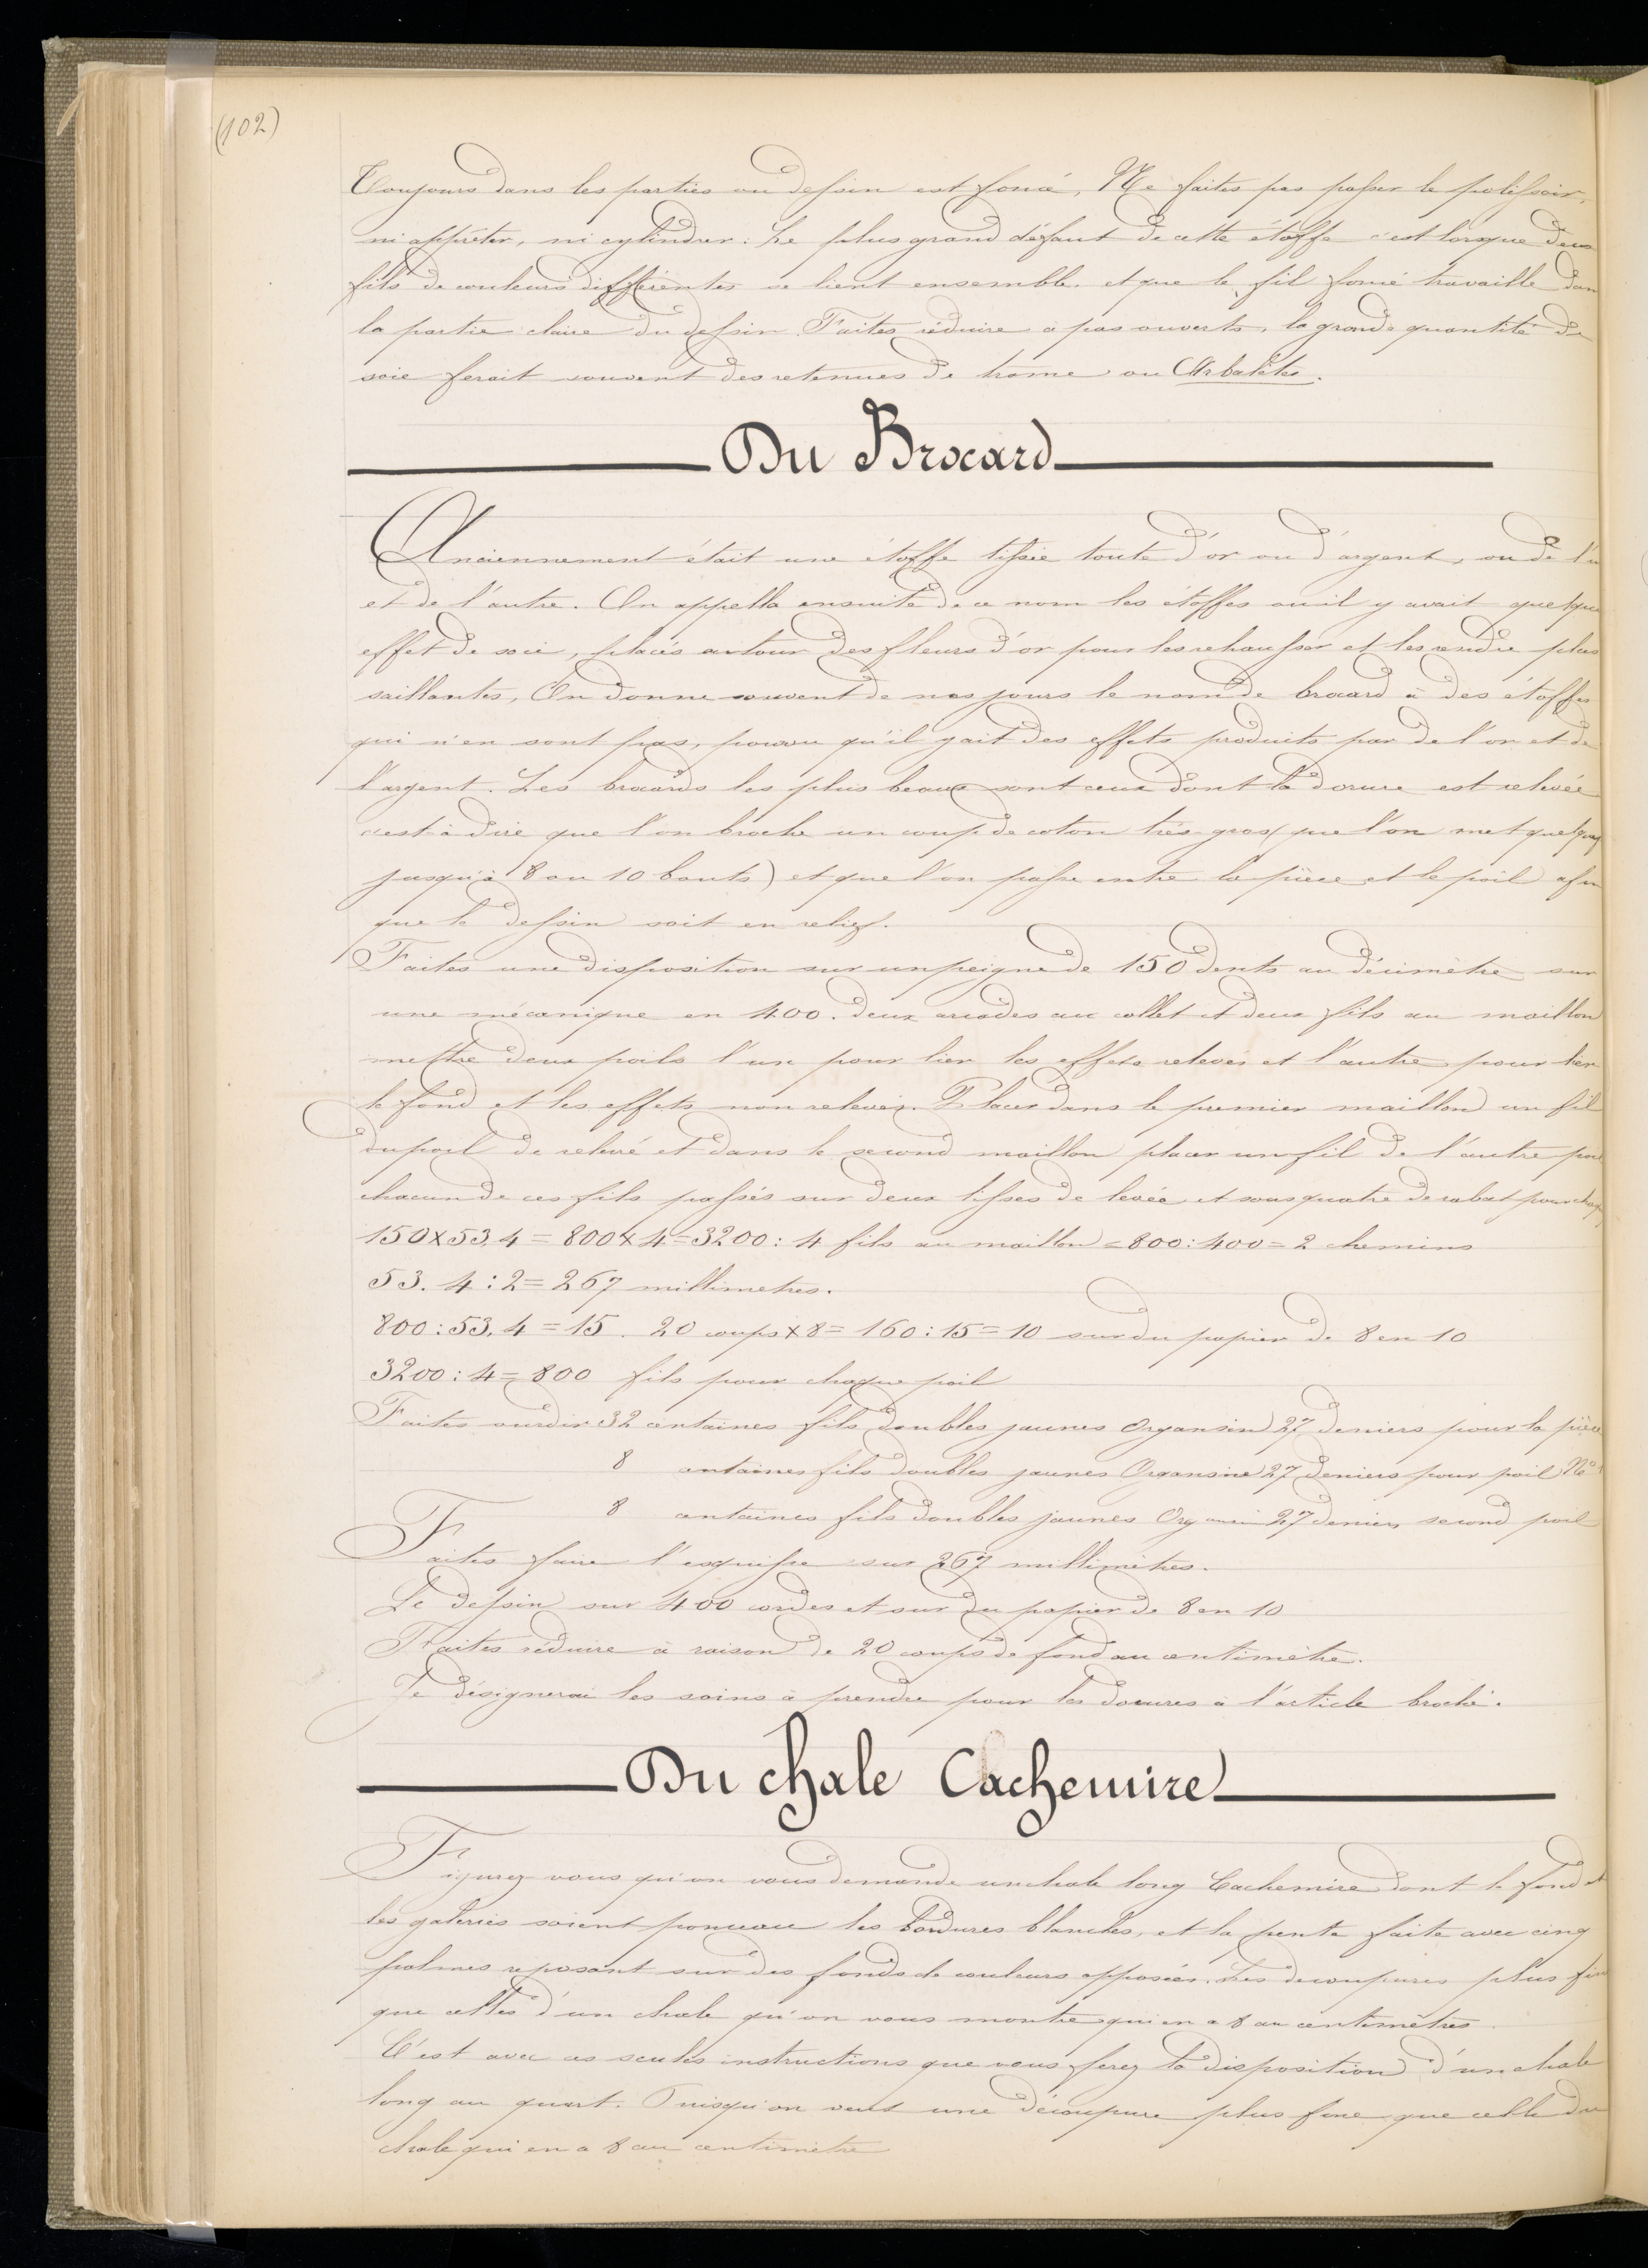 (102)
Toujours dans les parties ou dessin est foncé, Ne faites pas passer le polissoir,
ni apprêter, ni cylindrer. Le plus grand défaut de cette étoffe c'est lorsque deux
fils de couleurs différentes se lient ensemble et que le fil foncé travaille dan
la partie claire du dessin. Faites réduire à pas ouverts, la grande quantité de
soie ferait souvent des retenues de trame ou Arbalètes.
Du Brocard
Anciennement était une étoffe tissée toute d'or ou d'argent, ou de l'u
et de l'autre. On appella ensuite de ce nom les étoffes ou il y avait quelque
effet de soie, placés autour des fleurs d'or pour les rehausser et les rendre plus
saillantes, On donne souvent de nos jours le nom de brocard à des étoffes
qui n'en sont pas, pourvu qu'il y ait des effets produits par de l'or et de
l'argent. Les brocards les plus beaux sont ceux dont la dorure est relevée
c'est à dire que l'on broche un coup de coton très gros (que l'on met
jusqu'à 8 ou 10 bouts) et que l'on passe entre la pièce et le poil afin
que le dessin soit en relief.
Faites une disposition sur un peigne de 150 dents au décimètre sur
une mécanique en 400. deux arcades au collet et deux fils au maillon
mettre deux poils l'un pour lier les effets relevés et l'autre pour lier
le fond et les effets non relevés. Placer dans le premier maillon un fil
du poil de relevé et dans le second maillon placer un fil de l'autre poil
chacun de ces fils passés sur deux lisses de levée et sous quatre de rabat pour
150 x 53.4 = 800 x 4 = 3200 : 4 fils au maillon = 800 : 400 = 2 chemins
53. 4 : 2 = 267 millimetres.
800 : 53. 4 = 15. 20 coups x 8 = 160 : 15 = 10 sur du papier de 8 en 10
3200 : 4 = 800 fils pour chaque poil
Faites ourdir 32 centaines fils doubles jaunes Organsin 27 deniers pour la pièce
8 centaines fils doubles jaunes Organsin 27 deniers pour poil No
8 centaines fils doubles jaunes Organsin 27 deniers second poil
Faites faire l'esquisse sur 267 millimètres.
Le dessin sur 400 cordes et sur du papier de 8 en 10
Faites réduire à raison de 20 coups de fond au centimètre.
Je désignerai les soins à prendre pour les dorures à l'article broché.
Du chale Cachemire
Figurez vous qu'on vous demande un chale long Cachemire dont le fond et
les galeries soient ponceau les bordures blanches, et la pente faite avec cinq
palmes reposant sur des fonds de couleurs opposées. Les decoupures plus fin
que celles d'un chale qu'on vous montre qui en a 8 au centimètres.
C'est avec ces seules instructions que vous ferez la disposition d'un chale
long au quart. Puisqu'on veut une découpure plus fine que celle du
chale qui en a 8 au centimètre